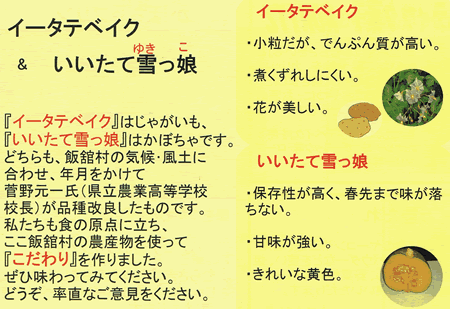 イータテベイク
& いいたて雪っ娘
ゆき こ
『イータテベイク』はじゃがいも、
『いいたて雪っ娘』はかぼちゃです。
どちらも、飯舘村の気候・風土に
合わせ、年月をかけて
菅野元一氏(県立農業高等学校
校長)が品種改良したものです。
私たちも食の原点に立ち、
ここ飯舘村の農産物を使って
『こだわり』を作りました。
ぜひ味わってみてください。
どうぞ、率直なご意見をください。
イータテベイク
・小粒だが、でんぷん質が高い。
・煮くずれしにくい。
・花が美しい。
いいたて雪っ娘
・保存性が高く、春先まで味が
落ちない。
・甘味が強い。
・きれいな黄色。